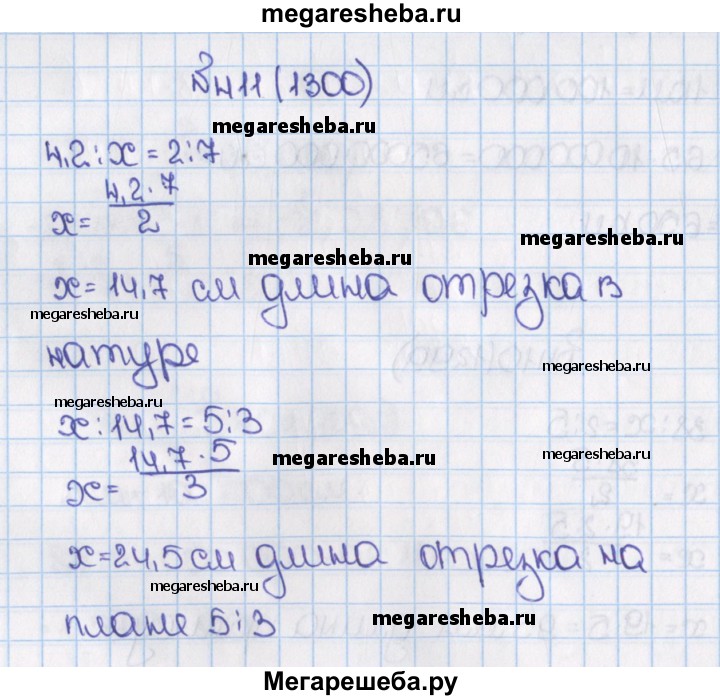 megaresheba.ru
№411 (1300)
megaresheba.ru
4,2 : x = 2 : 7
x = 4,2 · 7 / 2
megaresheba.ru
megaresheba.ru
x = 14,7 см длина отрезка в
megaresheba.ru
натуре
megaresheba.ru
megaresheba.ru
x : 14,7 = 5 : 3
x = 14,7 · 5 / 3
megaresheba.ru
megaresheba.ru
x = 24,5 см длина отрезка на
megaresheba.ru
плане 5 : 3
megaresheba.ru
Мегарешеба.ру